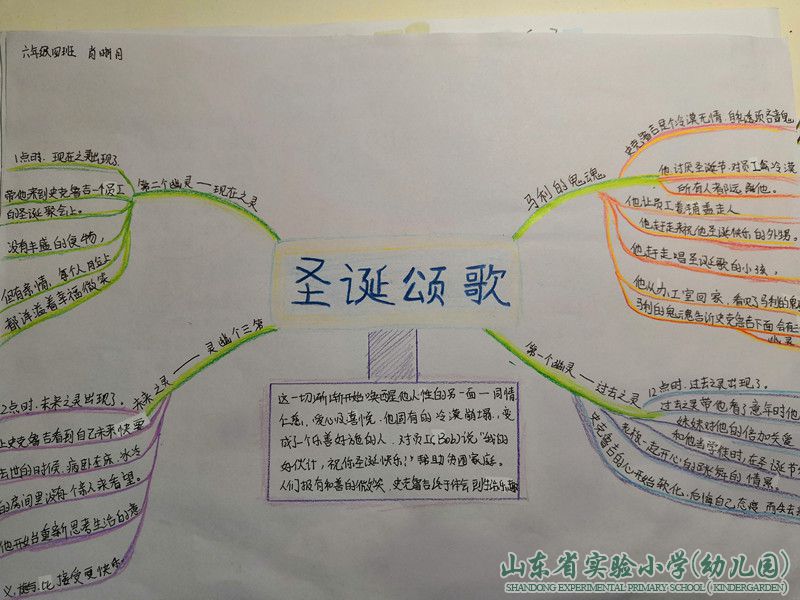 六年级四班 肖明月
圣诞颂歌
马利的鬼魂
史克鲁吉是个冷漠无情、自私透顶吝啬鬼
他讨厌圣诞节.对员工冷漠
所有人都远离他。
他让员工着
他赶走来祝他圣诞快乐的外甥。
他赶走唱圣诞歌的小孩,
他从办公室回家,看见了马利的鬼
马利的鬼魂告诉史克鲁吉下面会有三
幽灵
第一个幽灵——过去之灵
12点时.过去之灵出现了。
过去之灵带他看了童年时他
妹妹对他的倍加关爱
和他当学徒时,在圣诞节
老板一起开心的跳舞的情景。
史克鲁吉的心开始软化.后悔自己态度
第二个幽灵——现在之灵
1点时.现在之灵出现了
带他来到史克鲁吉一个员工
的圣诞歌会上。
没有丰盛的食物,
但有亲情,每个人脸上
都洋溢着幸福微笑
第三个幽灵——未来之灵
2点时.未来之灵出现了。
史克鲁吉看到自己未来快要
去世的日时候,病卧在床,冰冷
的房间里没有一个亲人来看望。
他开始重新思考生活的意
义,接受更快乐。
这一切渐渐开始唤醒他人性的另一面—同情
仁慈、爱心及喜悦.他固有的冷漠崩塌,变
成了个乐善好施的人. 对员工(Bob)说“我的
好伙计,祝你圣诞快乐!”帮助贫困家庭。
人们报有和善的微笑,史克鲁吉
山东省实验小学(幼儿园)
SHANDONG EXPERIMENTAL PRIMARY SCHOOL (KINDERGARDEN)